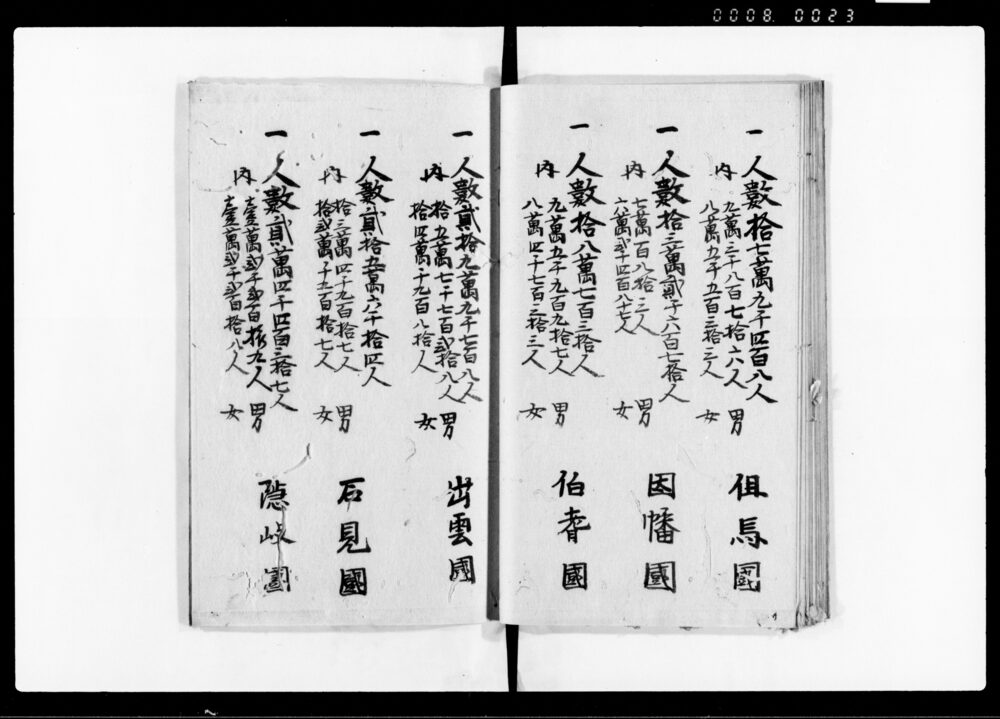 0008. 0023
一人數拾七萬九千四百八人 但馬國
内 九萬三千八百七拾六人 男
八萬五千五百三拾二人 女
一人數拾三萬貳千六百七拾人 因幡國
内 七萬百八拾三人 男
六萬貳千四百八十七人 女
一人數拾八萬七百三拾人 伯耆國
内 九萬五千九百九拾七人 男
八萬四千七百三拾三人 女
一人數貳拾九萬九千七百八人 出雲國
内 拾五萬七千七百貳拾八人 男
拾四萬千九百八拾人 女
一人數貳拾五萬六千拾四人 石見國
内 拾三萬四千九拾七人 男
拾貳萬千九百拾七人 女
一人數貳萬四千四百三拾七人 隠岐國
内 壹萬貳千貳百拾九人 男
壹萬貳千貳百拾八人 女